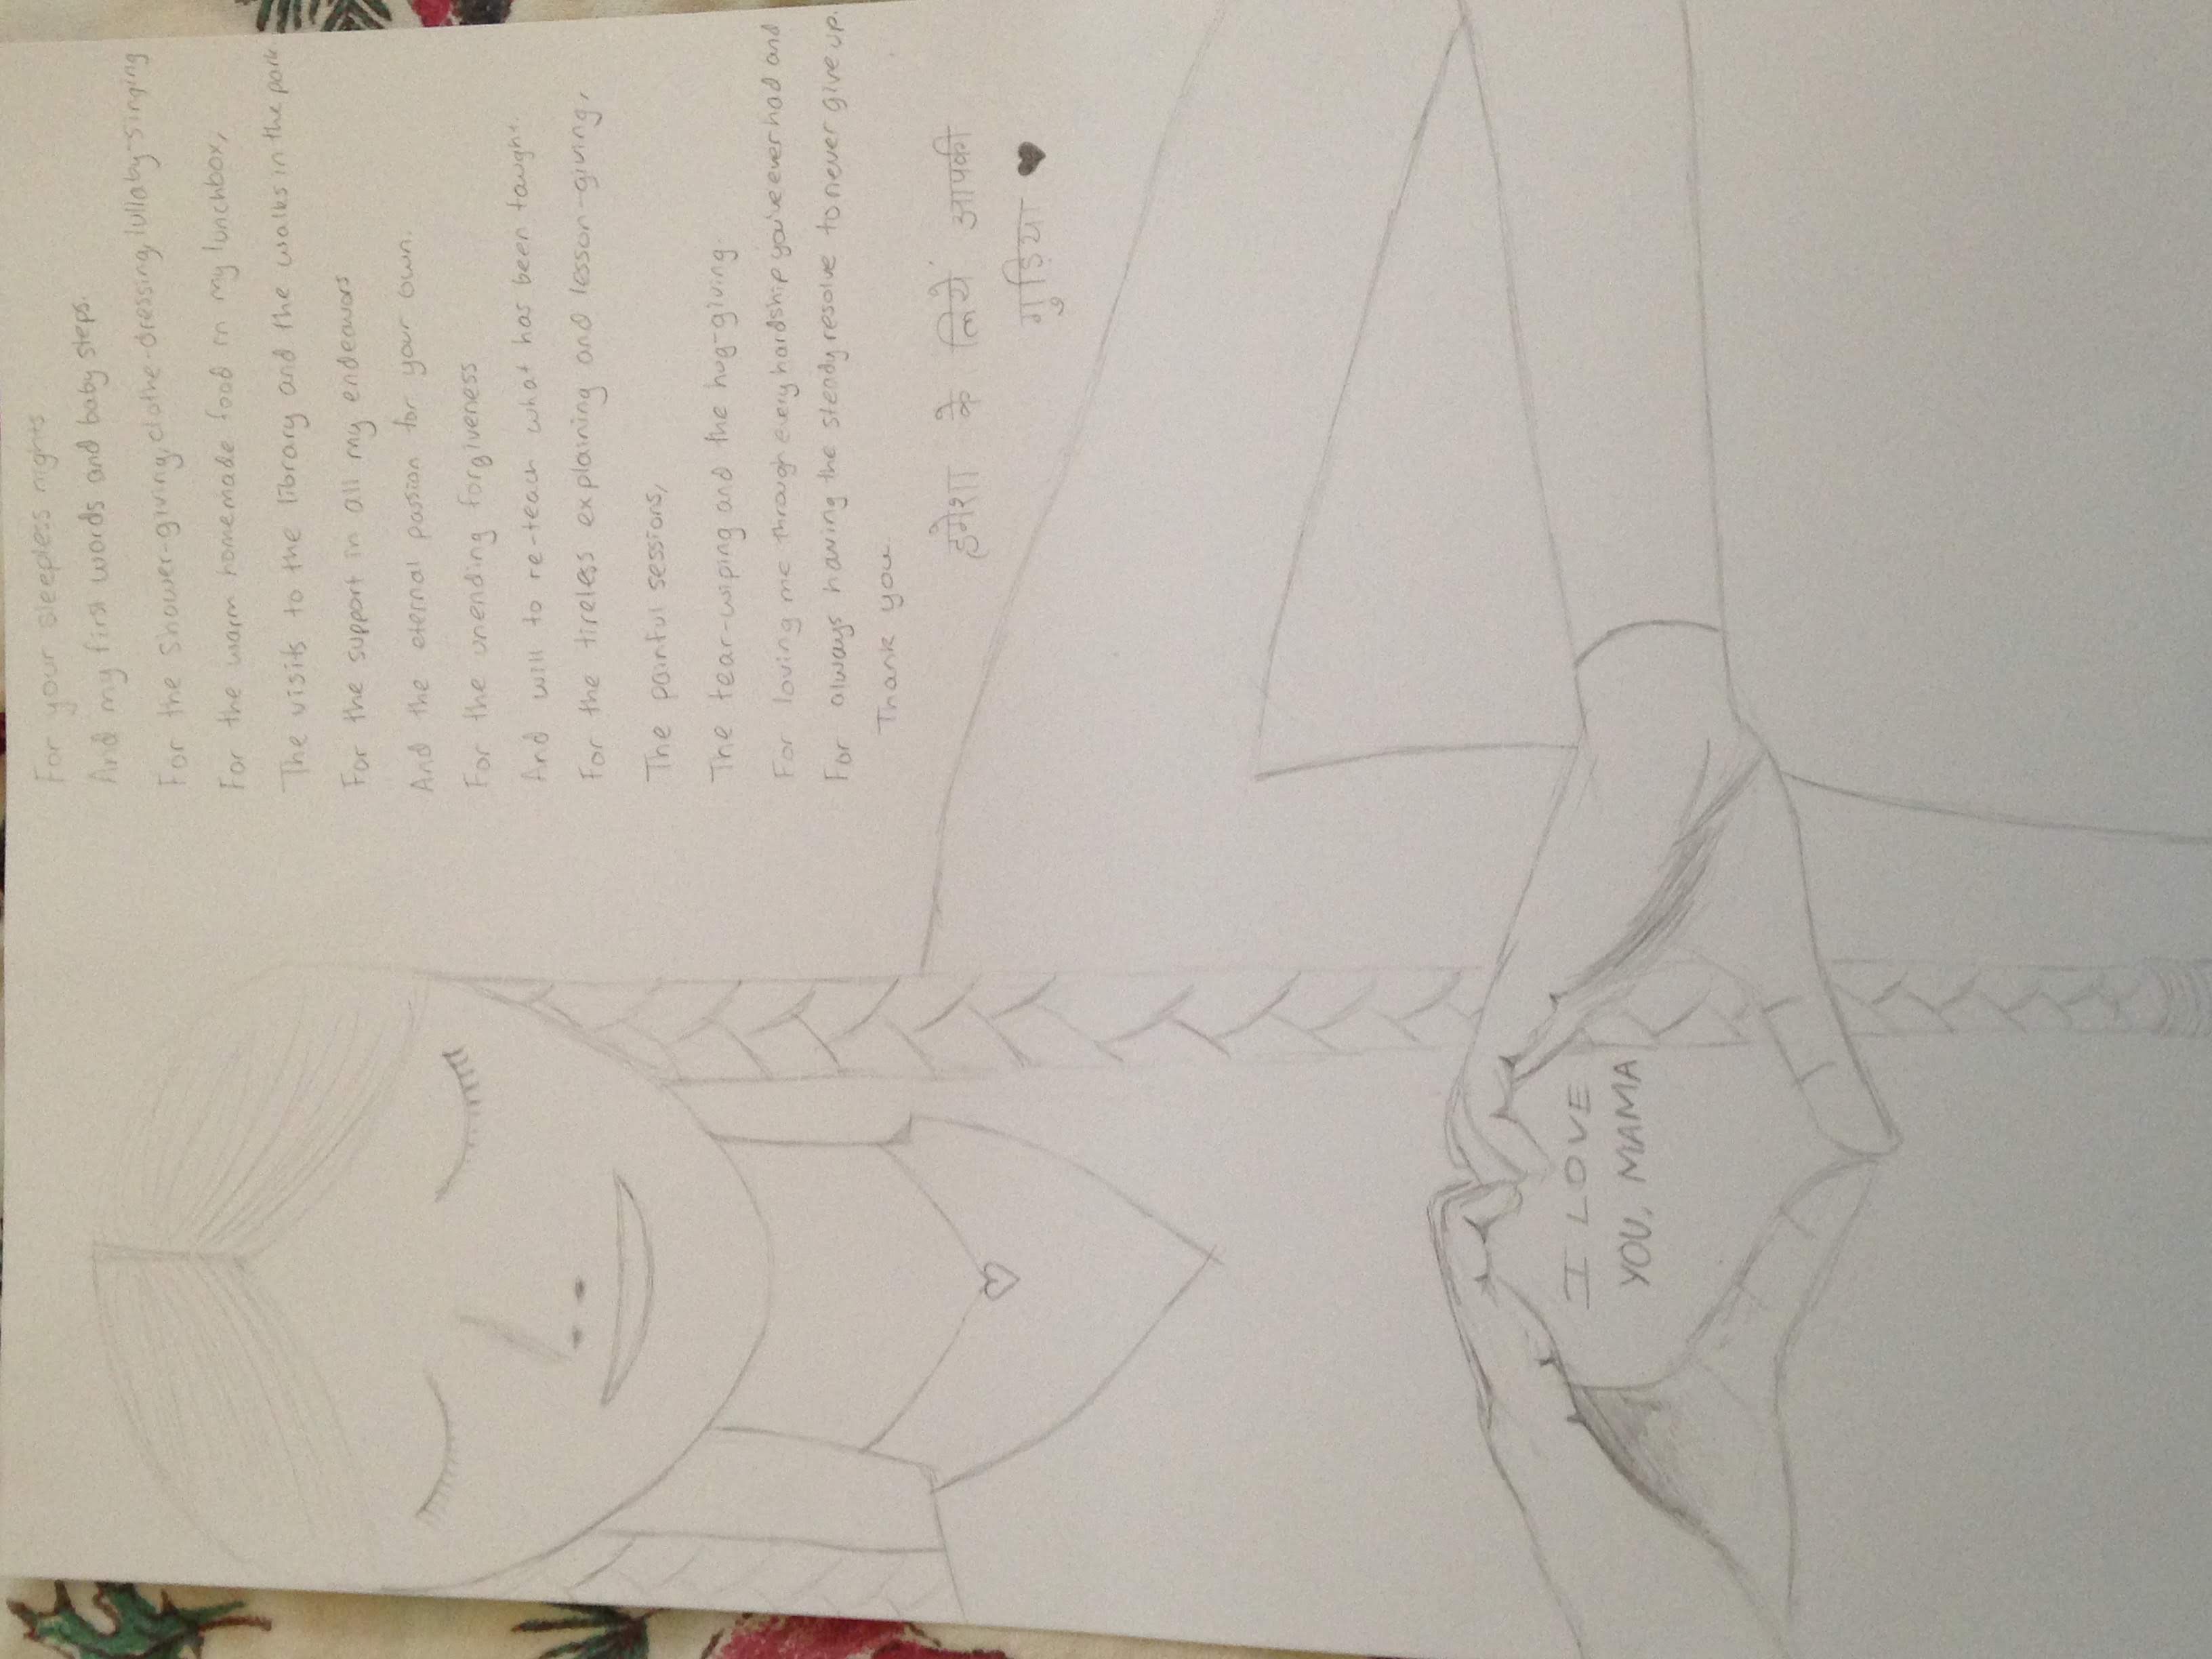 For your sleepless nights
And my first words and baby steps.
For the shower-giving, clothe-dressing, lullaby-singing
For the warm homemade food in my lunchbox,
The visits to the library and the walks in the park.
For the support in all my endeavors
And the eternal passion for your own.
For the unending forgiveness
And will to re-teach what has been taught.
For the tireless explaining and lesson-giving,
The painful sessions,
The tear-wiping and the hug-giving.
For loving me through every hardship you've ever had and
For always having the steady resolve to never give up.
Thank you.
हमेशा के लिये आपकी
गुड़िया ♥
I LOVE
YOU, MAMA